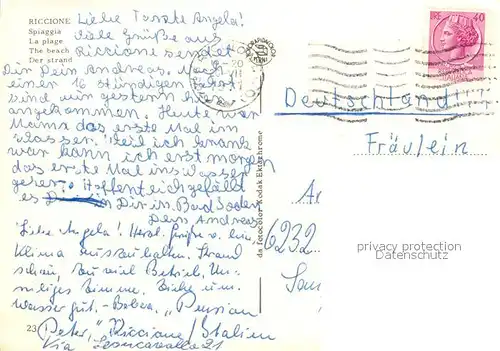 RICCIONE
Spiaggia
La plage
The beach
Der strand
Liebe Tante Angela!
viele Grüße aus
Riccione sendet
Dir Dein Andreas. Nach
einer 16 stündigen Fahrt
sind wir gestern hier
angekommen. Heute war
Mama das erste Mal im
Wasser. Weil ich krank
war kann ich erst morgen
das erste Mal ins Wasser
gehen. Hoffentlich gefällt
es Dir in Bad Soden
Dein Andreas
Liebe Angela! Herzl. Grüße v. hier.
Klima auszuhalten. Strand
schön, zu viel Betrieb,
Zimmer.
Wasser gut. - "Pension
Peter," Riccione / Italien
Via 21
23
da fotocolor Kodak Ektachrome
40
Deutschland
Fräulein
6232
privacy protection
AnsichtskartenVersand